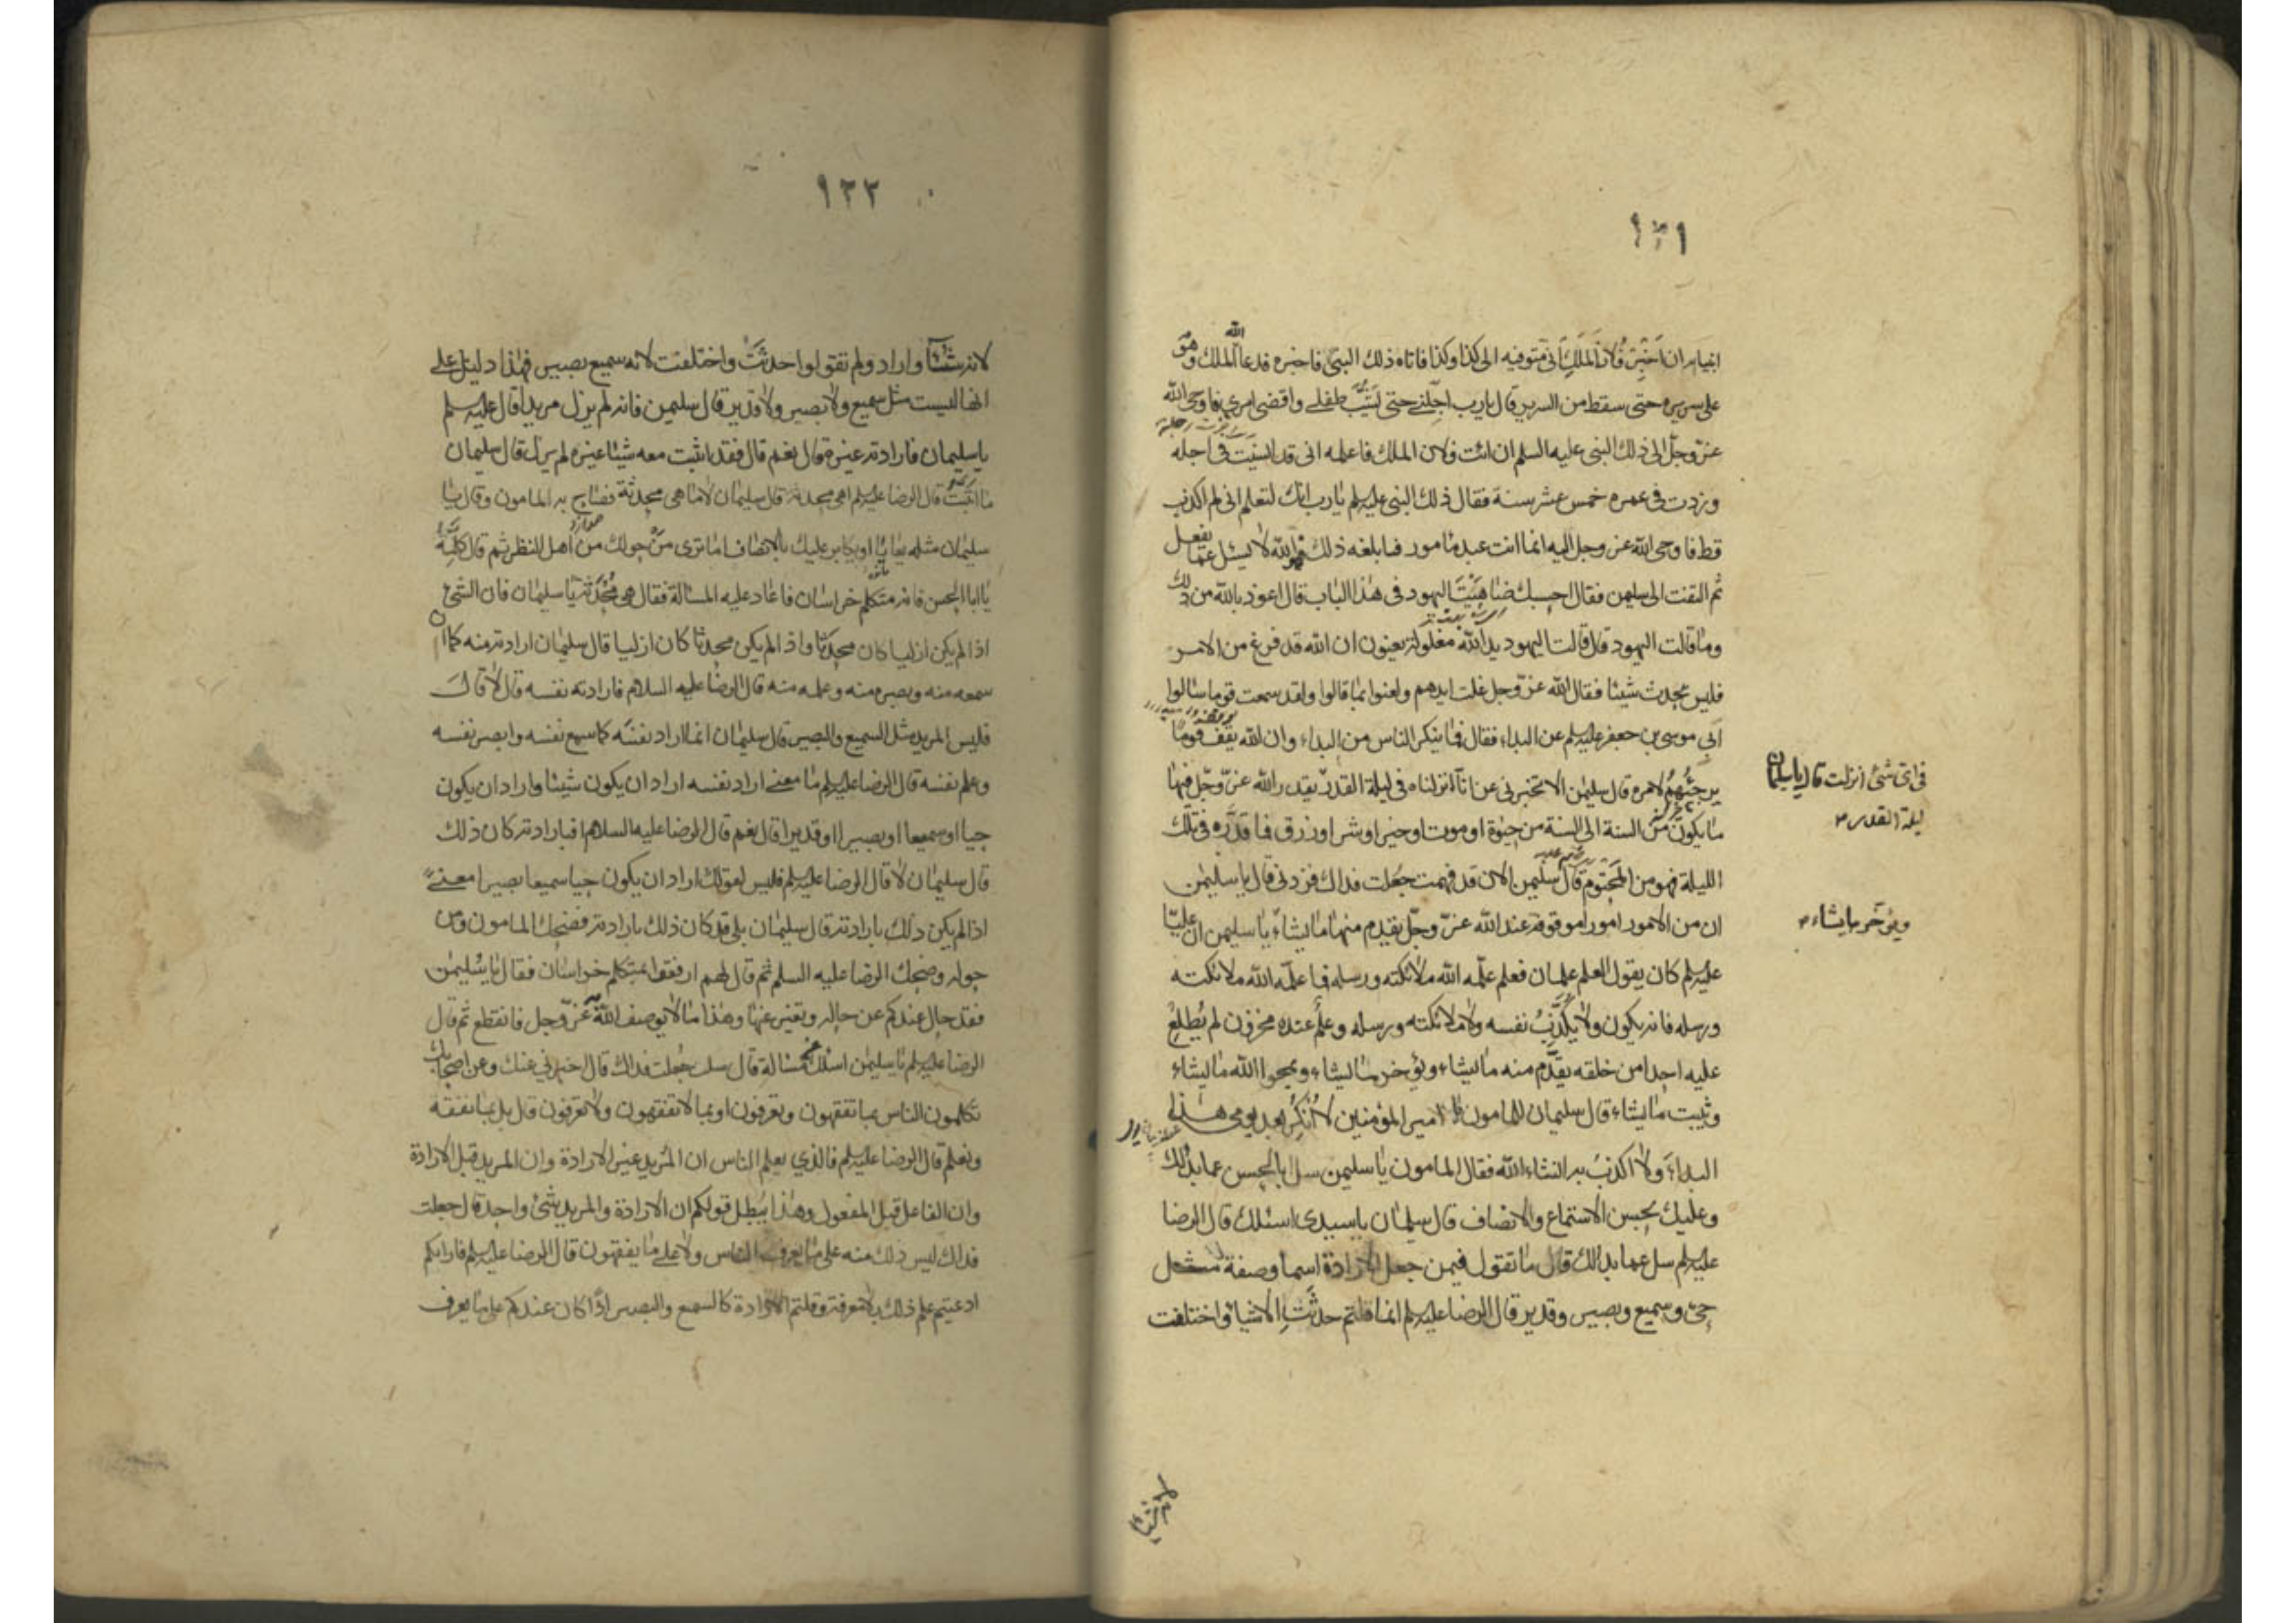 ١٣١
انبيائه ان اَخْبِرْ فُلانَ المَلِكَ اَنّى متوفيه الى كذا وكذا فاتاه ذلك النبىّ فاخبره فدعا الله الملك وهو
على سريره حتى سقط من السرير قال يا رب اجّلنى حتى يَشِبَّ طفلى واقضى امرى فاوحى الله
عزّ وجلّ الى ذلك النبى عليه السلم ان ائت فلان الملك فاعلمه انى قد انسيت فى اجله
وزدت فى عمره خمس عشر سنة فقال ذلك النبى عليه السلم يا رب انك لتعلم انى لم اكذب
قط فاوحى الله عز وجل اليه انما انت عبد مامور فابلغه ذلك والله لا يسئل عما يفعل
ثم التفت الى سليمن فقال احسبك ضاهيت اليهود فى هذا الباب قال اعوذ بالله من ذلك
وما قالت اليهود قال قالت اليهود يد الله مغلولة يعنون ان الله قد فرغ من الامر
فليس يحدث شيئا فقال الله عزّ وجل غلت ايديهم ولعنوا بما قالوا ولقد سمعت قوما سالوا
ابى موسى بن جعفر عليه السلم عن البداء فقال فما ينكر الناس من البداء وان لله يقف قوما
يرجئهم لامره قال سليمن الا تخبرنى عن انا انزلناه فى ليلة القدر يقدر الله عزّ وجلّ فيها
فى اى شئ انزلت قال يا سليمان
ليلة القدر
ما يكون من السنة الى السنة من حيوة او موت او خير او شر او رزق فما قدّره فى تلك
الليلة فهو من المحتوم قال سليمن الان قد فهمت جعلت فداك فزدنى قال يا سليمن
ان من الامور امورا موقوفة عند الله عزّ وجلّ يقدم منها ما يشاء يا سليمن ان عليّا
ويؤخر ما يشاء
عليه السلم كان يقول العلم علمان فعلم علّمه الله ملائكته ورسله فما علّمه الله ملائكته
ورسله فانه يكون ولا يُكَذِّبُ نفسه ولا ملائكته ورسله وعلم عنده مخزون لم يُطلِعْ
عليه احدا من خلقه يقدّم منه ما يشاء ويؤخر ما يشاء ويمحوا الله ما يشاء
ويثبت ما يشاء قال سليمان للمامون يا امير المؤمنين لا اُنكِرُ بعد يومى هذا
البداء ولا اكذب به انشاء الله فقال المامون يا سليمن سل ابا الحسن عما بدا لك
وعليك بحسن الاستماع والانصاف قال سليمان يا سيدى اسئلك قال الرضا
عليه السلم سل عما بدا لك قال ما تقول فيمن جعل الارادة اسما وصفة مثل
حىّ وسميع وبصير وقدير قال الرضا عليه السلم انما قلتم حدثَتِ الاشياء واختلفت
لانه شاء
١٣٢
لانه شاء واراد ولم تقولوا حدثَتْ واختلفت لانه سميع بصير فهذا دليل على
انها ليست مثل سميع ولا بصير ولا قدير قال سليمن فانه لم يزل مريدا قال عليه السلم
يا سليمان فارادته غيره قال نعم قال فقد اثبت معه شيئا غيره لم يزل قال سليمان
ما اثبتُّ قال الرضا عليه السلم اهى محدثة قال سليمان لا ما هى محدثة فصاح به المامون وقال يا
سليمان مثله يعايا او يكابر عليك بالانصاف اما ترى من حولك من اهل النظر ثم قال كلّمه
يا ابا الحسن فانه متكلم خراسان فاعاد عليه المسئالة فقال هى مُحْدَثَة يا سليمان فان الشئ
اذا لم يكن ازليا كان محدثا واذا لم يكن محدثا كان ازليا قال سليمان ارادته منه كما ان
سمعه منه وبصره منه وعلمه منه قال الرضا عليه السلام فارادته نفسه قال لا قال
فليس المريد مثل السميع والبصير قال سليمان انما اراد نفسَه كما سمع نفسه وابصر نفسه
وعلم نفسه قال الرضا عليه السلم ما معنى اراد نفسه اراد ان يكون شيئا واراد ان يكون
حيا او سميعا او بصيرا او قديرا قال نعم قال الرضا عليه السلام افبارادته كان ذلك
قال سليمان لا قال الرضا عليه السلم فليس لقولك اراد ان يكون حيا سميعا بصيرا معنى
اذا لم يكن ذلك بارادته قال سليمان بلى قد كان ذلك بارادته فضحك المامون ومن
حوله وضحك الرضا عليه السلم ثم قال لهم ارفقوا بمتكلم خراسان فقال يا سليمن
فقد حال عندكم عن حاله وتغير عنها وهذا ما لا يوصف الله عزّ وجل فانقطع ثم قال
الرضا عليه السلم يا سليمن اسئلك مسئالة قال سل جُعلت فداك قال اخبرنى عنك وعن اصحابك
تكلمون الناس بما تفقهون وتعرفون او بما لا تفقهون ولا تعرفون قال بل بما نفقه
ونعلم قال الرضا عليه السلم فالذى يعلم الناس ان المُريد غير الارادة وان المريد قبل الارادة
وان الفاعل قبل المفعول وهذا يبطل قولكم ان الارادة والمريد شئ واحد قال جعلت
فداك ليس ذلك منه على ما يعرف الناس ولا على ما يفقهون قال الرضا عليه السلم فاراكم
ادعيتم علم ذلك بلا معرفة وقلتم الارادة كالسمع والبصر اذا كان عندكم على ما يعرف